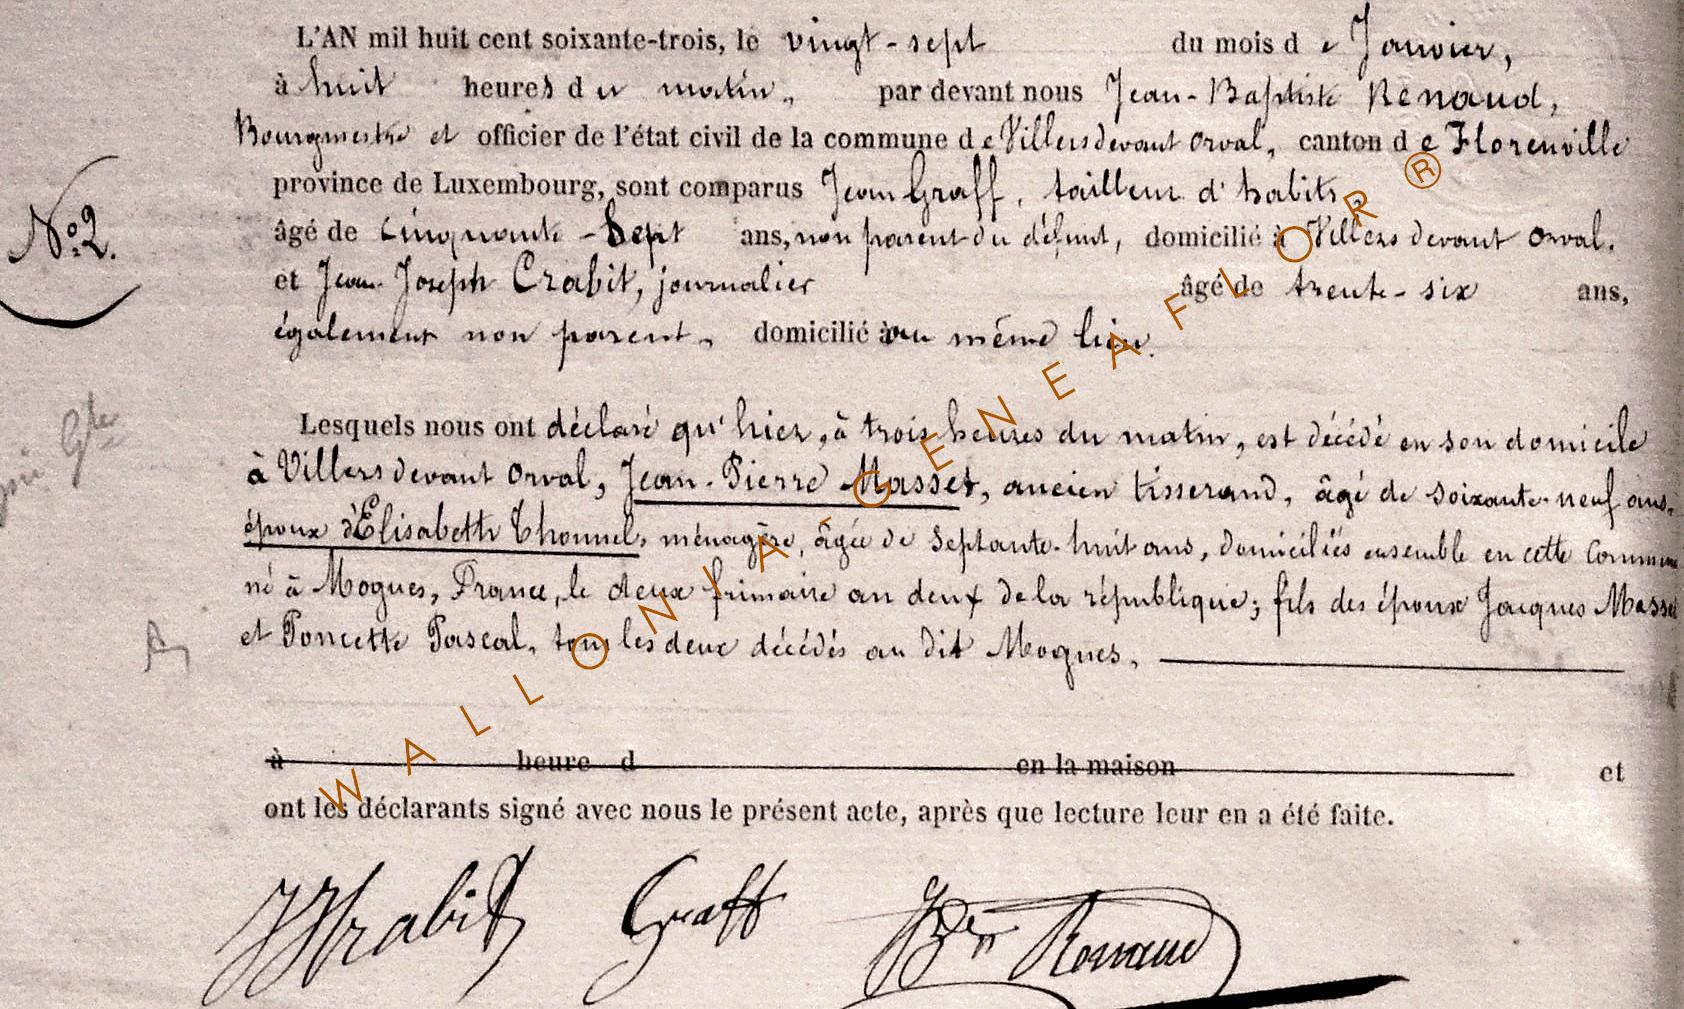 L'AN mil huit cent soixante-trois, le vingt-sept du mois de Janvier,
à huit heures du matin, par devant nous Jean-Baptiste Renaud,
Bourgmestre et officier de l'état civil de la commune de Villers devant Orval, canton de Florenville
province de Luxembourg, sont comparus Jean Graff, tailleur d'habits,
N° 2.
âgé de cinquante-Sept ans, non parent du défunt, domicilié à Villers devant Orval.
et Jean Joseph Crabit, journalier âgé de trente-six ans,
également non parent, domicilié au même lieu.
Lesquels nous ont déclaré qu'hier, à trois heures du matin, est décédé en son domicile
à Villers devant Orval, Jean-Pierre Masset, ancien tisserand, âgé de soixante-neuf ans,
époux d'Elisabeth Thonnel, ménagère, âgée de Septante-huit ans, domiciliés ensemble en cette Commune
né à Mogues, France, le deux frimaire an deux de la république; fils des époux Jacques Masset
et Poncette Pascal, tous les deux décédés au dit Mogues.
à heure d en la maison et
ont les déclarants signé avec nous le présent acte, après que lecture leur en a été faite.
JJCrabit Graff JBte Renaud
WALLONIA-GENEAFLOR®